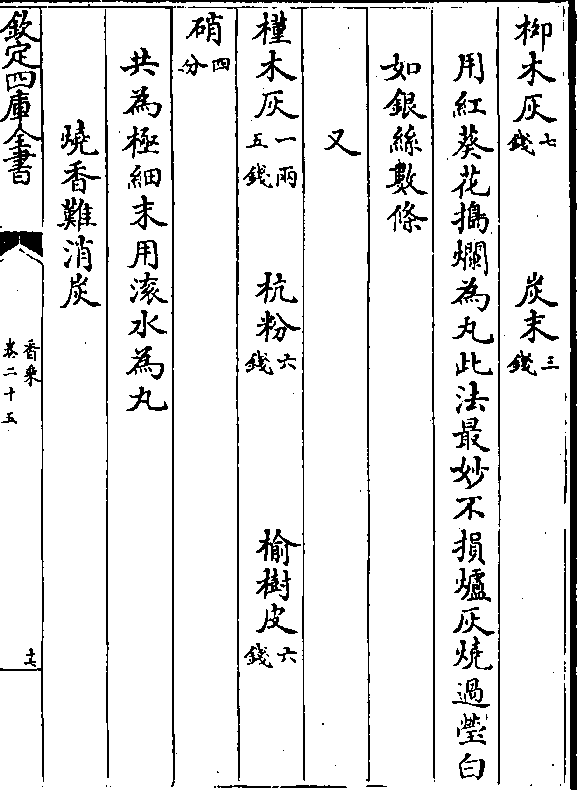 柳木灰七錢 炭末三錢
用紅葵花搗爛為丸此法最妙不損爐灰燒過瑩白
如銀絲數條
又
槿木灰一兩五錢 杭粉六錢 榆樹皮六錢
硝四分
共為極細末用滚水為丸
燒香難消炭
欽定四庫全書
香乗
卷二十五